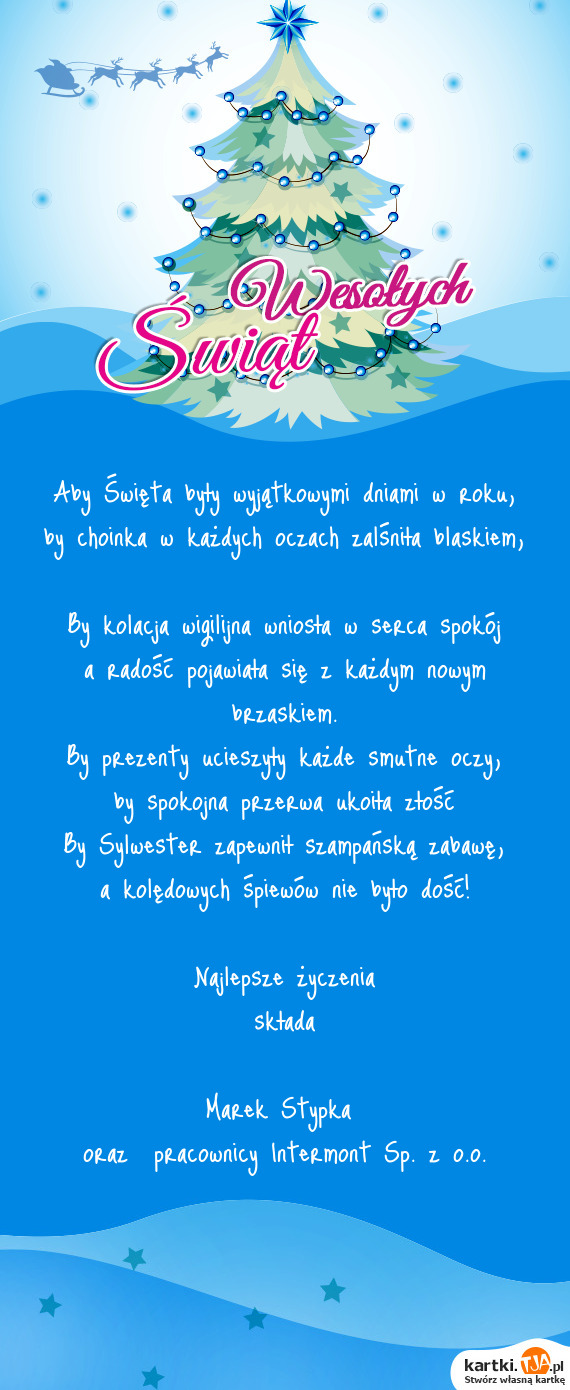 Wesołych
Świąt
Aby Święta były wyjątkowymi dniami w roku,
by choinka w każdych oczach zalśniła blaskiem,
By kolacja wigilijna wniosła w serca spokój
a radość pojawiała się z każdym nowym
brzaskiem.
By prezenty ucieszyły każde smutne oczy,
by spokojna przerwa ukoiła złość
By Sylwester zapewnił szampańską zabawę,
a kolędowych śpiewów nie było dość!
Najlepsze życzenia
składa
Marek Stypka
oraz pracownicy Intermont Sp. z o.o.
kartki.TJA.pl
Stwórz własną kartkę